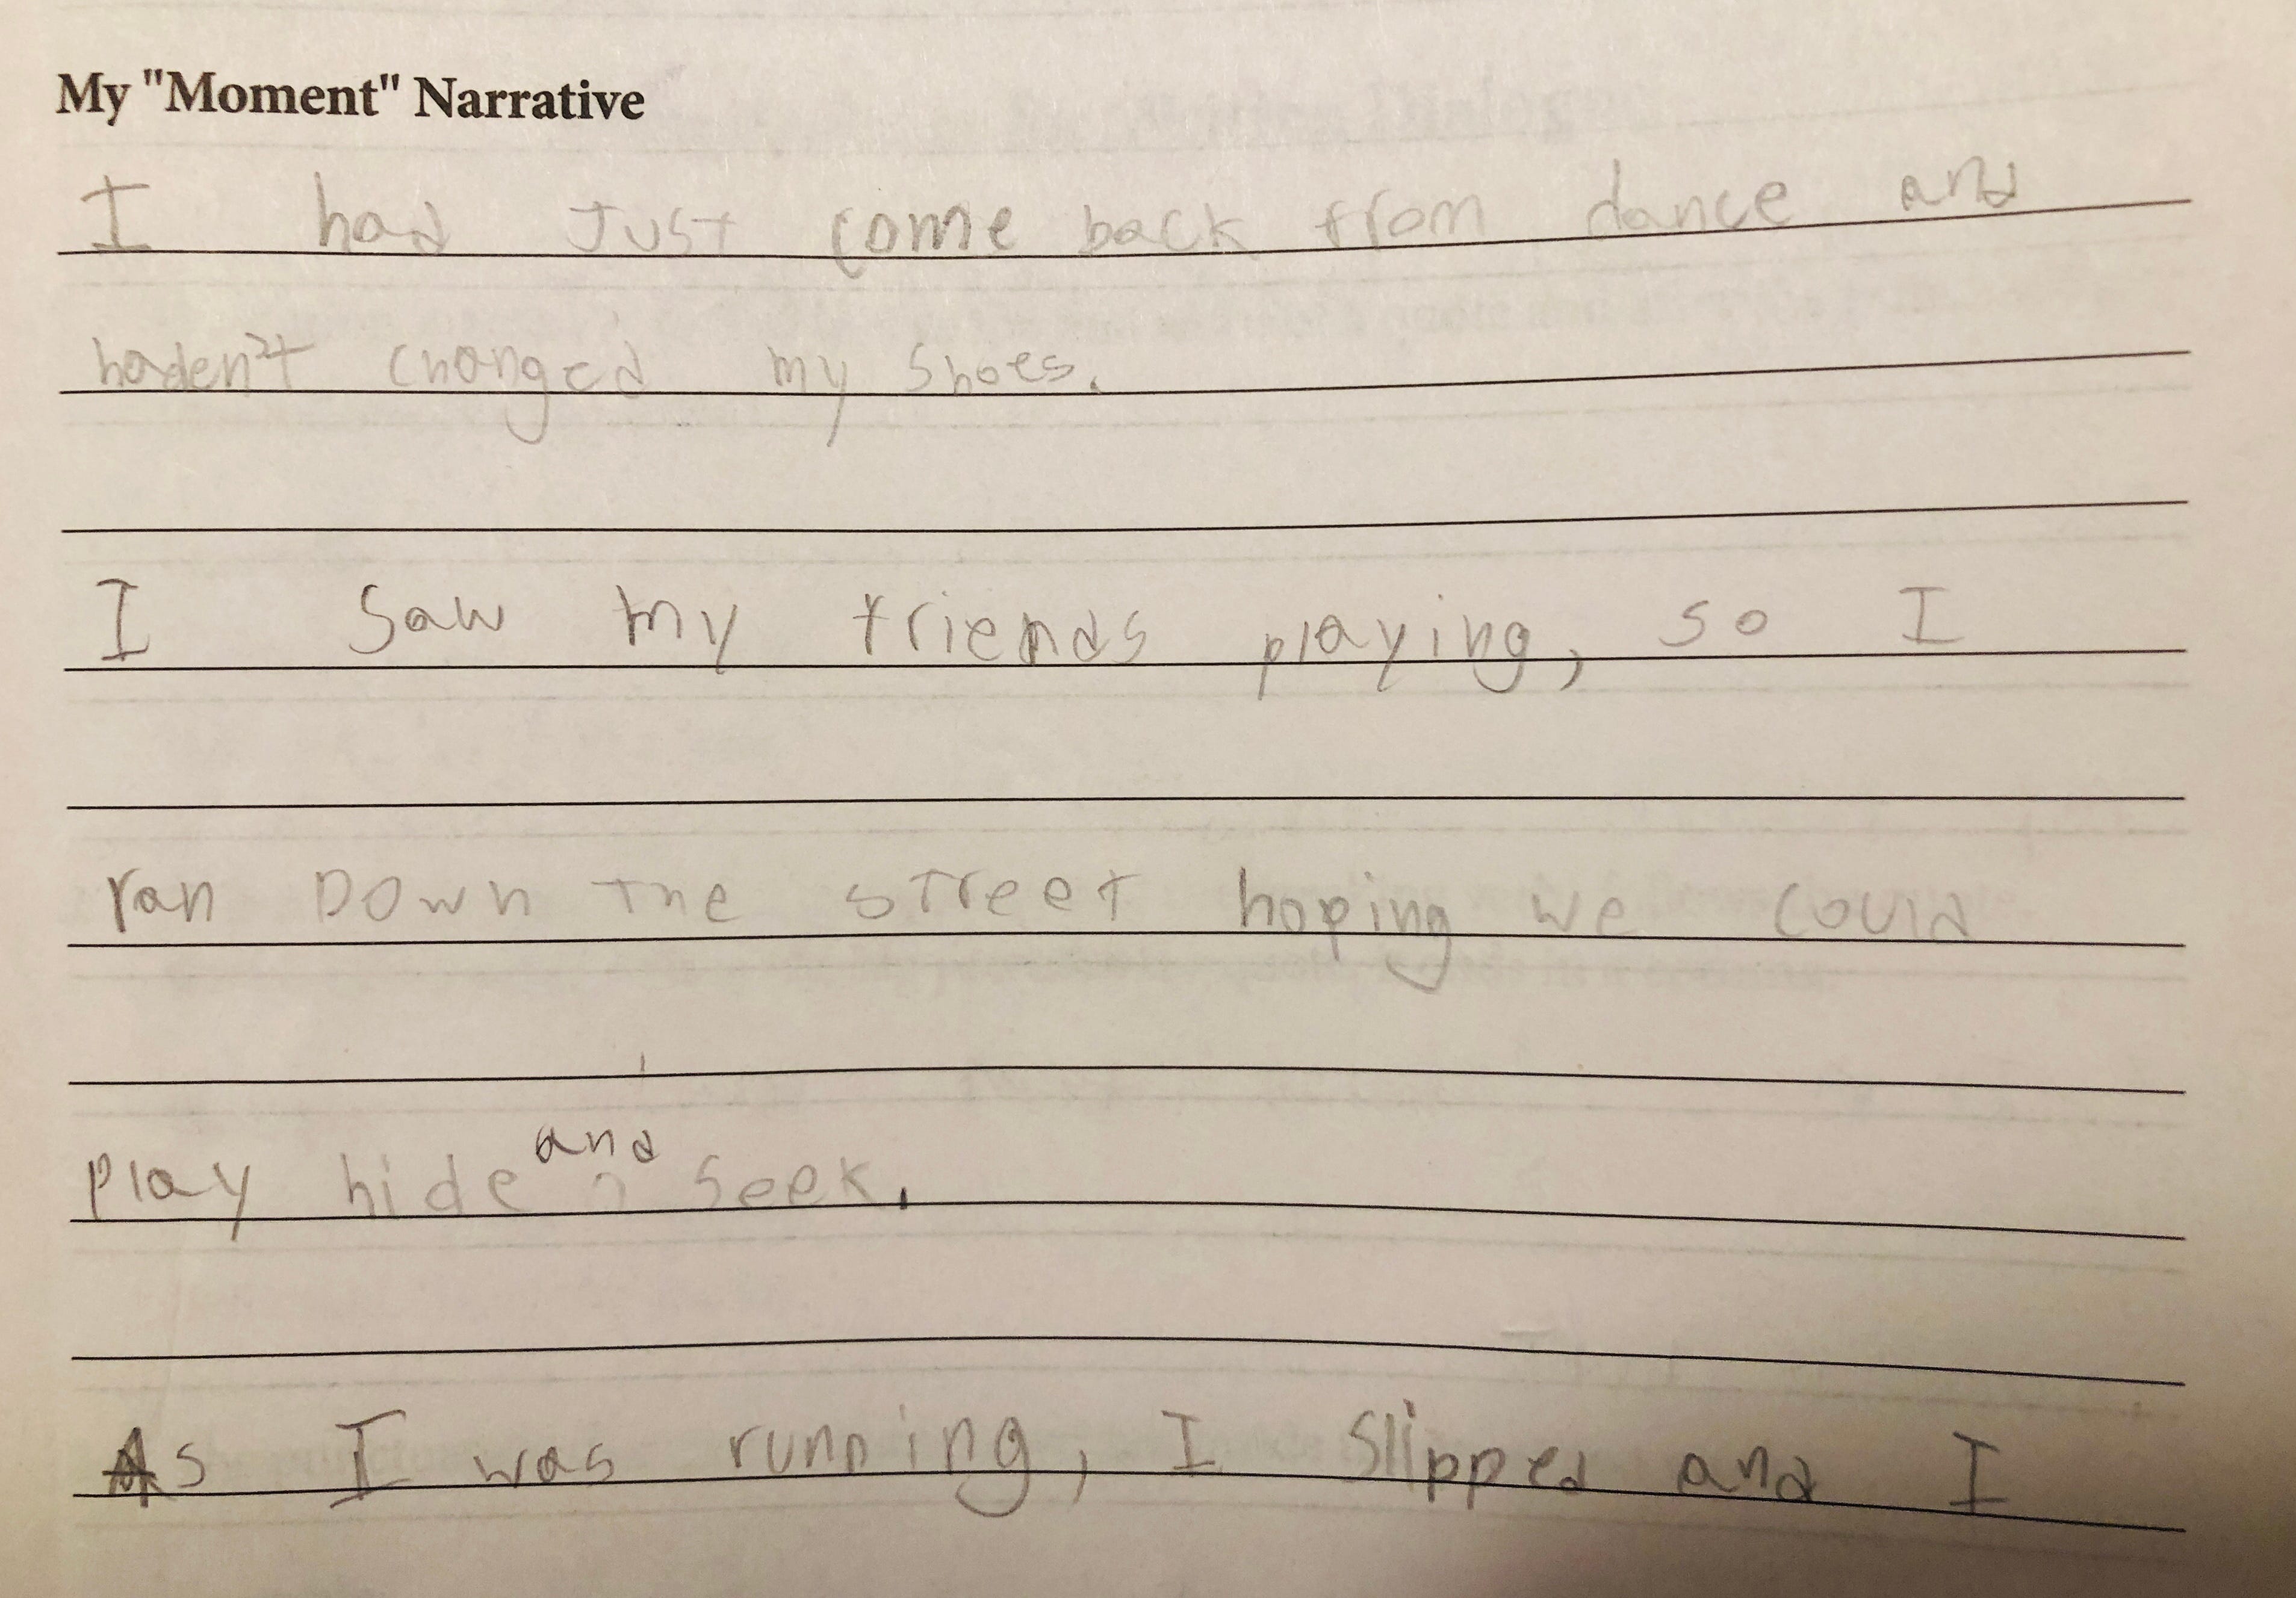 My "Moment" Narrative
I had Just come back from dance and
haden't changed my shoes.
I Saw my friends playing, so I
ran Down The sTreeT hoping we could
Play hide and Seek.
As I was running, I Slipped and I